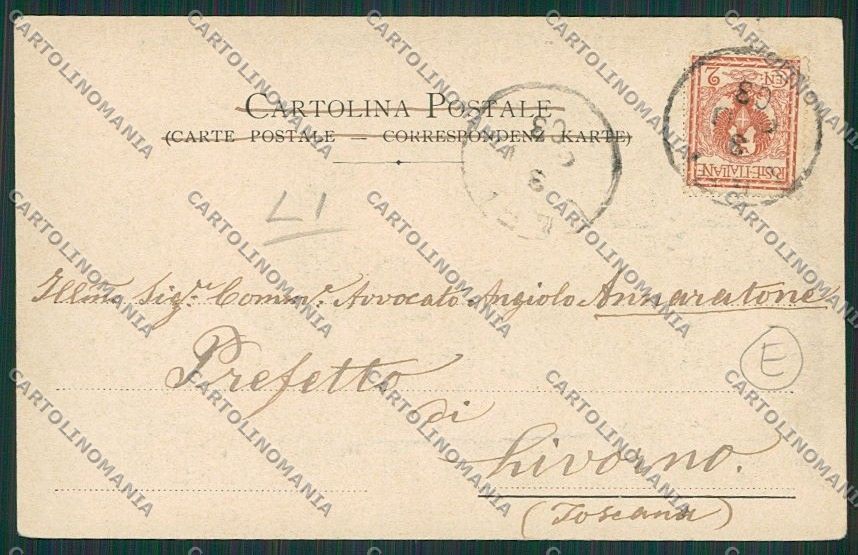 CARTOLINA POSTALE
(CARTE POSTALE — CORRESPONDENZ KARTE)
CEN. 2
POSTE·ITALIANE
LI
Illmo Sigr. Commr. Avvocato Angiolo Annaratone
E
Prefetto
di
Livorno.
(Toscana)
CARTOLINOMANIA